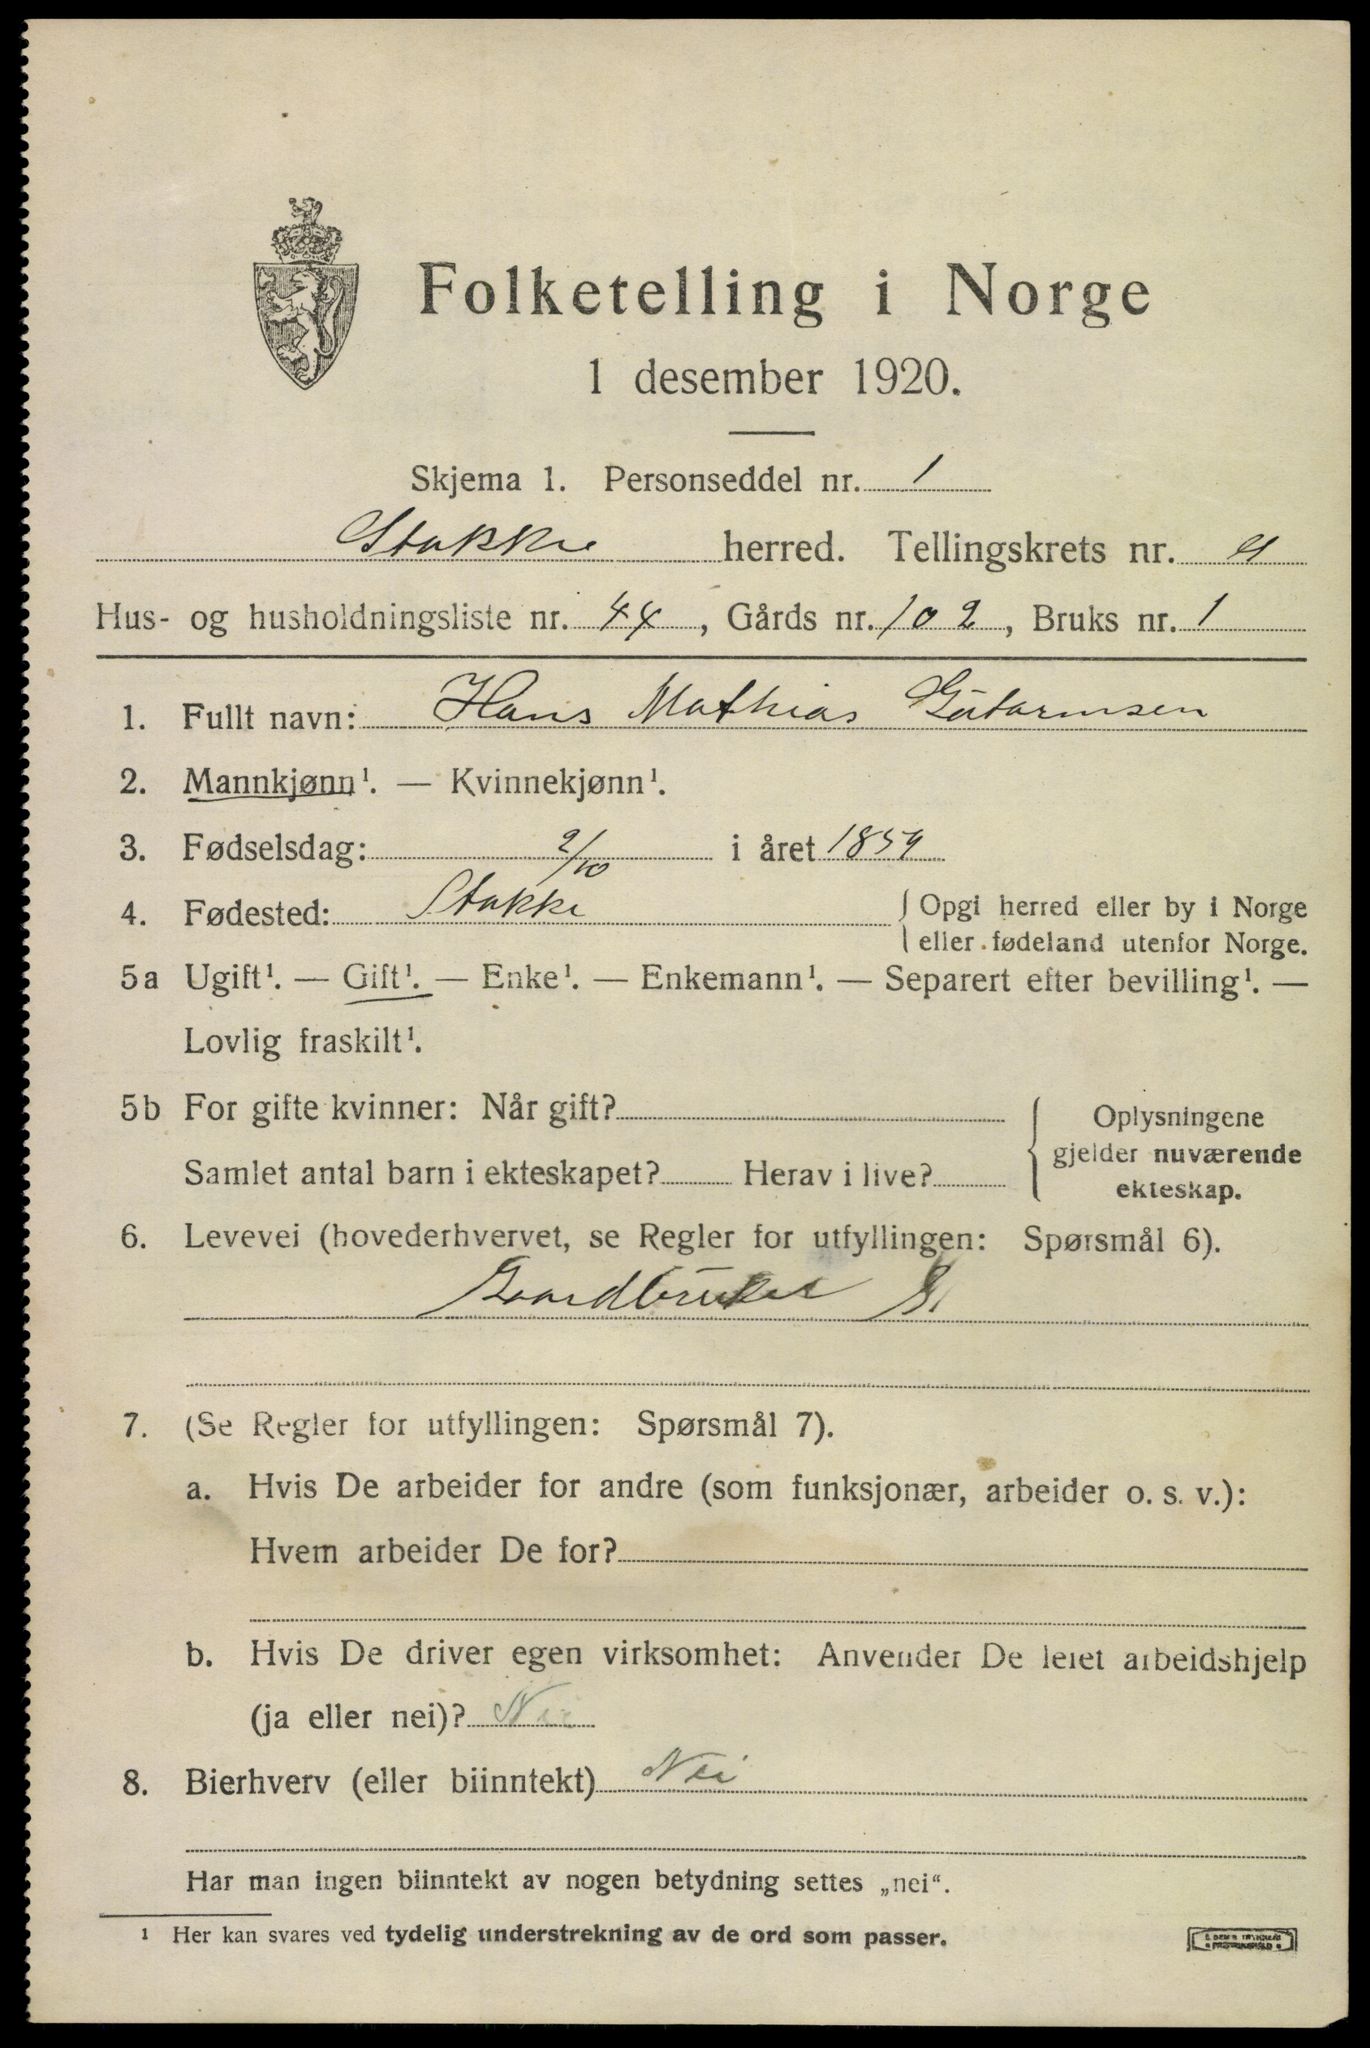 Folketelling i Norge
1 desember 1920.
Skjema 1. Personseddel nr. 1
Stokke herred. Tellingskrets nr. 4
Hus- og husholdningsliste nr. 44, Gårds nr. 102, Bruks nr. 1
1. Fullt navn: Hans Mathias
2. Mannkjønn¹. — Kvinnekjønn¹.
3. Fødselsdag: 2/10 i året 1859
4. Fødested: Stokke { Opgi herred eller by i Norge
eller fødeland utenfor Norge.
5a Ugift¹. — Gift¹. — Enke¹. — Enkemann¹. — Separert efter bevilling¹. —
Lovlig fraskilt¹.
5b For gifte kvinner: Når gift? { Oplysningene
gjelder nuværende
Samlet antal barn i ekteskapet? Herav i live? ekteskap.
6. Levevei (hovederhvervet, se Regler for utfyllingen: Spørsmål 6).
Gaardbruker S.
7. (Se Regler for utfyllingen: Spørsmål 7).
a. Hvis De arbeider for andre (som funksjonær, arbeider o. s. v.):
Hvem arbeider De for?
b. Hvis De driver egen virksomhet: Anvender De leiet arbeidshjelp
(ja eller nei)? Nei
8. Bierhverv (eller biinntekt) Nei
Har man ingen biinntekt av nogen betydning settes „nei“.
¹ Her kan svares ved tydelig understrekning av de ord som passer.